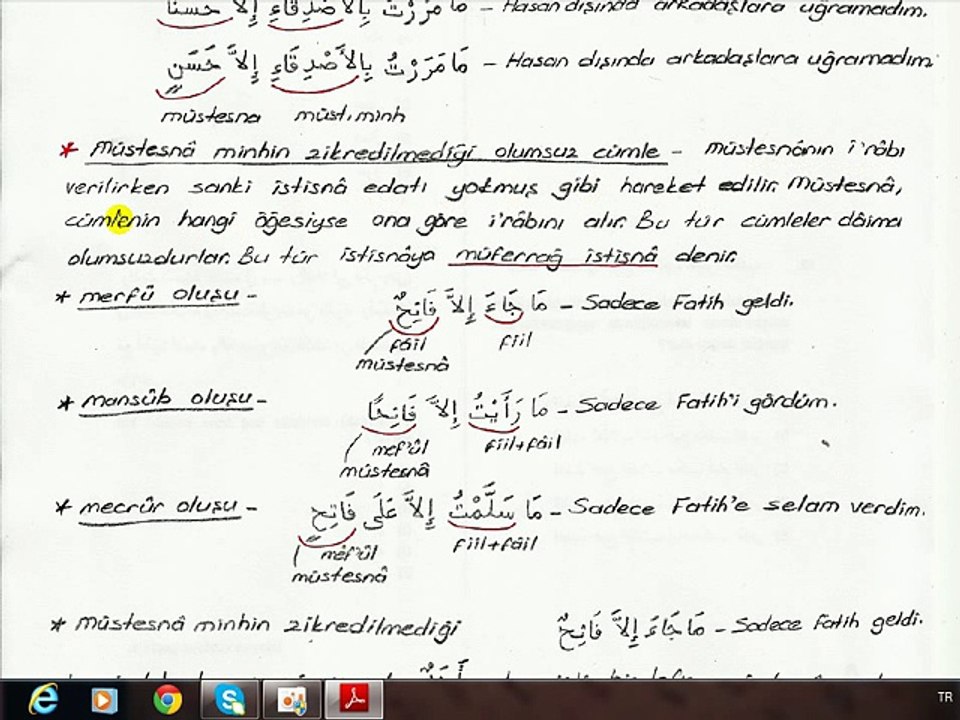 مَا مَرَرْتُ بِالأَصْدِقَاءِ إِلاَّ حَسَنًا – Hasan dışında arkadaşlara uğramadım.
مَا مَرَرْتُ بِالأَصْدِقَاءِ إِلاَّ حَسَنٍ – Hasan dışında arkadaşlara uğramadım.
müstesna müst. minh
* Müstesnâ minhin zikredilmediği olumsuz cümle – müstesnânın i'râbı
verilirken sanki istisnâ edatı yokmuş gibi hareket edilir. Müstesnâ,
cümlenin hangi öğesiyse ona göre i'râbını alır. Bu tür cümleler dâima
olumsuzdurlar. Bu tür istisnâya müferrağ istisnâ denir.
* merfû oluşu – مَا جَاءَ إِلاَّ فَاتِحٌ – Sadece Fatih geldi.
fâil fiil
müstesnâ
* mansûb oluşu – مَا رَأَيْتُ إِلاَّ فَاتِحًا – Sadece Fatih'i gördüm.
mef'ûl fiil+fâil
müstesnâ
* mecrûr oluşu – مَا سَلَّمْتُ إِلاَّ عَلَى فَاتِحٍ – Sadece Fatih'e selam verdim.
mef'ûl fiil+fâil
müstesnâ
* müstesnâ minhin zikredilmediği مَا جَاءَ إِلاَّ فَاتِحٌ – Sadece Fatih geldi.
TR